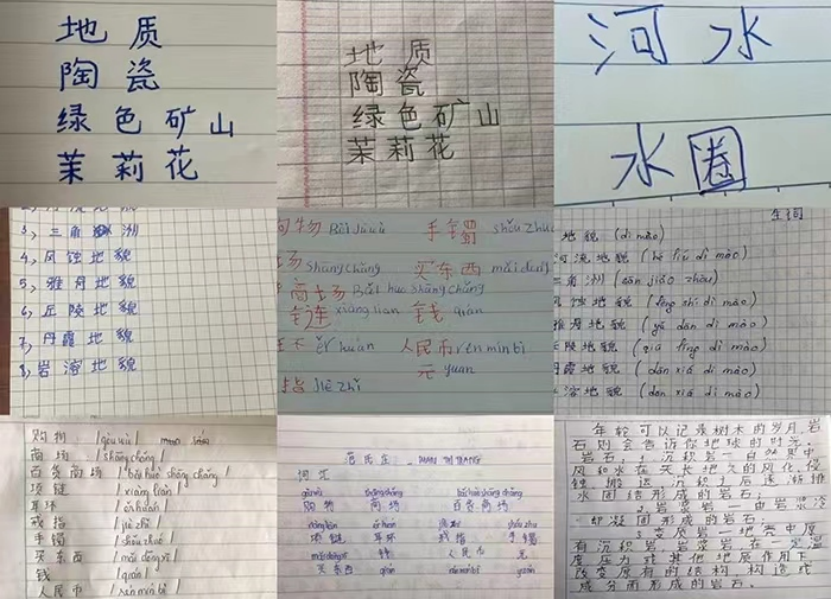 地质
陶瓷
绿色矿山
茉莉花
地质
陶瓷
绿色矿山
茉莉花
河水
水圈
3, 三角洲
4, 风蚀地貌
5, 雅丹地貌
6, 丘陵地貌
7, 丹霞地貌
8, 岩溶地貌
购物 手镯 shǒu zhuó
shāngchǎng 买东西 mǎi dōng
商场 Bǎi huo shāng chǎng
链 xiàng lian 钱 qián
ěr huán 人民币 rén mín bì
元 yuan
指 jiè zhǐ
生词
地貌 (dì mào)
河流地貌 (hé liú dì mào)
三角洲 (sān jiǎo zhōu)
风蚀地貌 (fēng shí dì mào)
雅丹地貌 (yǎ dān dì mào)
丘陵地貌 (qiū líng dì mào)
丹霞地貌 (dān xiá dì mào)
溶地貌 (dān xiá dì mào)
购物 /gòu wù/
商场 /shāng chǎng/
百货商场 /bǎi huò shāng chǎng/
项链 /xiàng liàn/
耳环 /ěr huán/
戒指 /jiè zhǐ/
手镯 /shǒu zhuó/
买东西 /mǎi dōng xī/
钱 /qián/
人民币 /rén mín bì/
gòu wù shāng chǎng bǎi huò shāng chǎng
购物 商场 百货商场
项链 耳环 戒指 手镯
买东西 钱 人民币 元
qián rén mín bì yuán
年轮可以记录树木的岁月,岩
石则会告诉你地球的时光。
岩石: 1, 沉积岩一自然界中
风和水在天长地久的风化、侵
蚀、搬运、沉积上后逐渐排
水固结形成的岩石;
2, 岩浆岩一由岩浆冷
却凝固形成的岩石;
3, 变质岩一地壳中原
有沉积岩、岩浆岩在一定温
度压力或其他地质作用下
改变原有的结构、构造或
成分而形成的岩石。